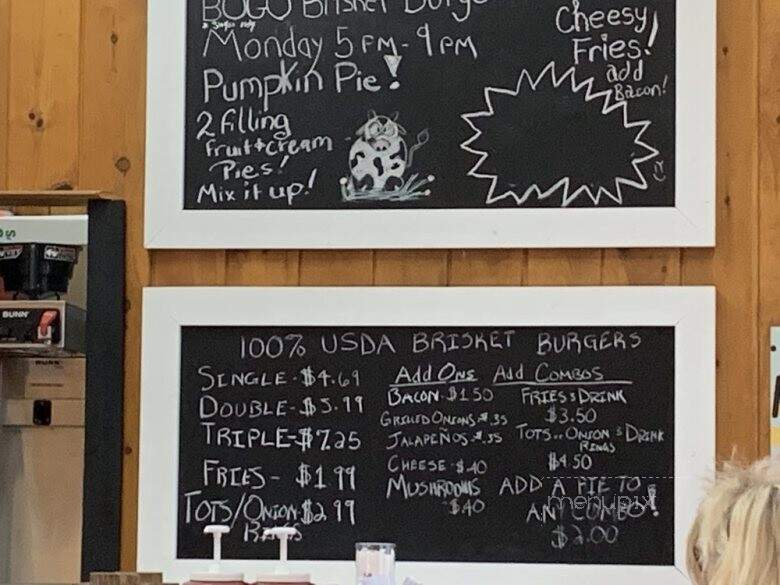 BOGO Brisket Burge
Monday 5PM-9PM
Pumpkin Pie!
2 filling
fruit & cream
Pies!
Mix it up!
Cheesy
Fries!
add
Bacon!
BUNN
100% USDA BRISKET BURGERS
SINGLE-$4.69
DOUBLE-$5.99
TRIPLE-$7.25
FRIES-$1.99
TOTS/ONION-$2.99
RINGS
Add Ons
BACON-$1.50
GRILLED ONIONS $.35
JALAPEÑOS $.35
CHEESE-$.40
MUSHROOMS
$.40
Add COMBOS
FRIES & DRINK
$3.50
TOTS.. ONION & DRINK
RINGS
$4.50
ADD A PIE TO
ANY COMBO!
$2.00
menupix